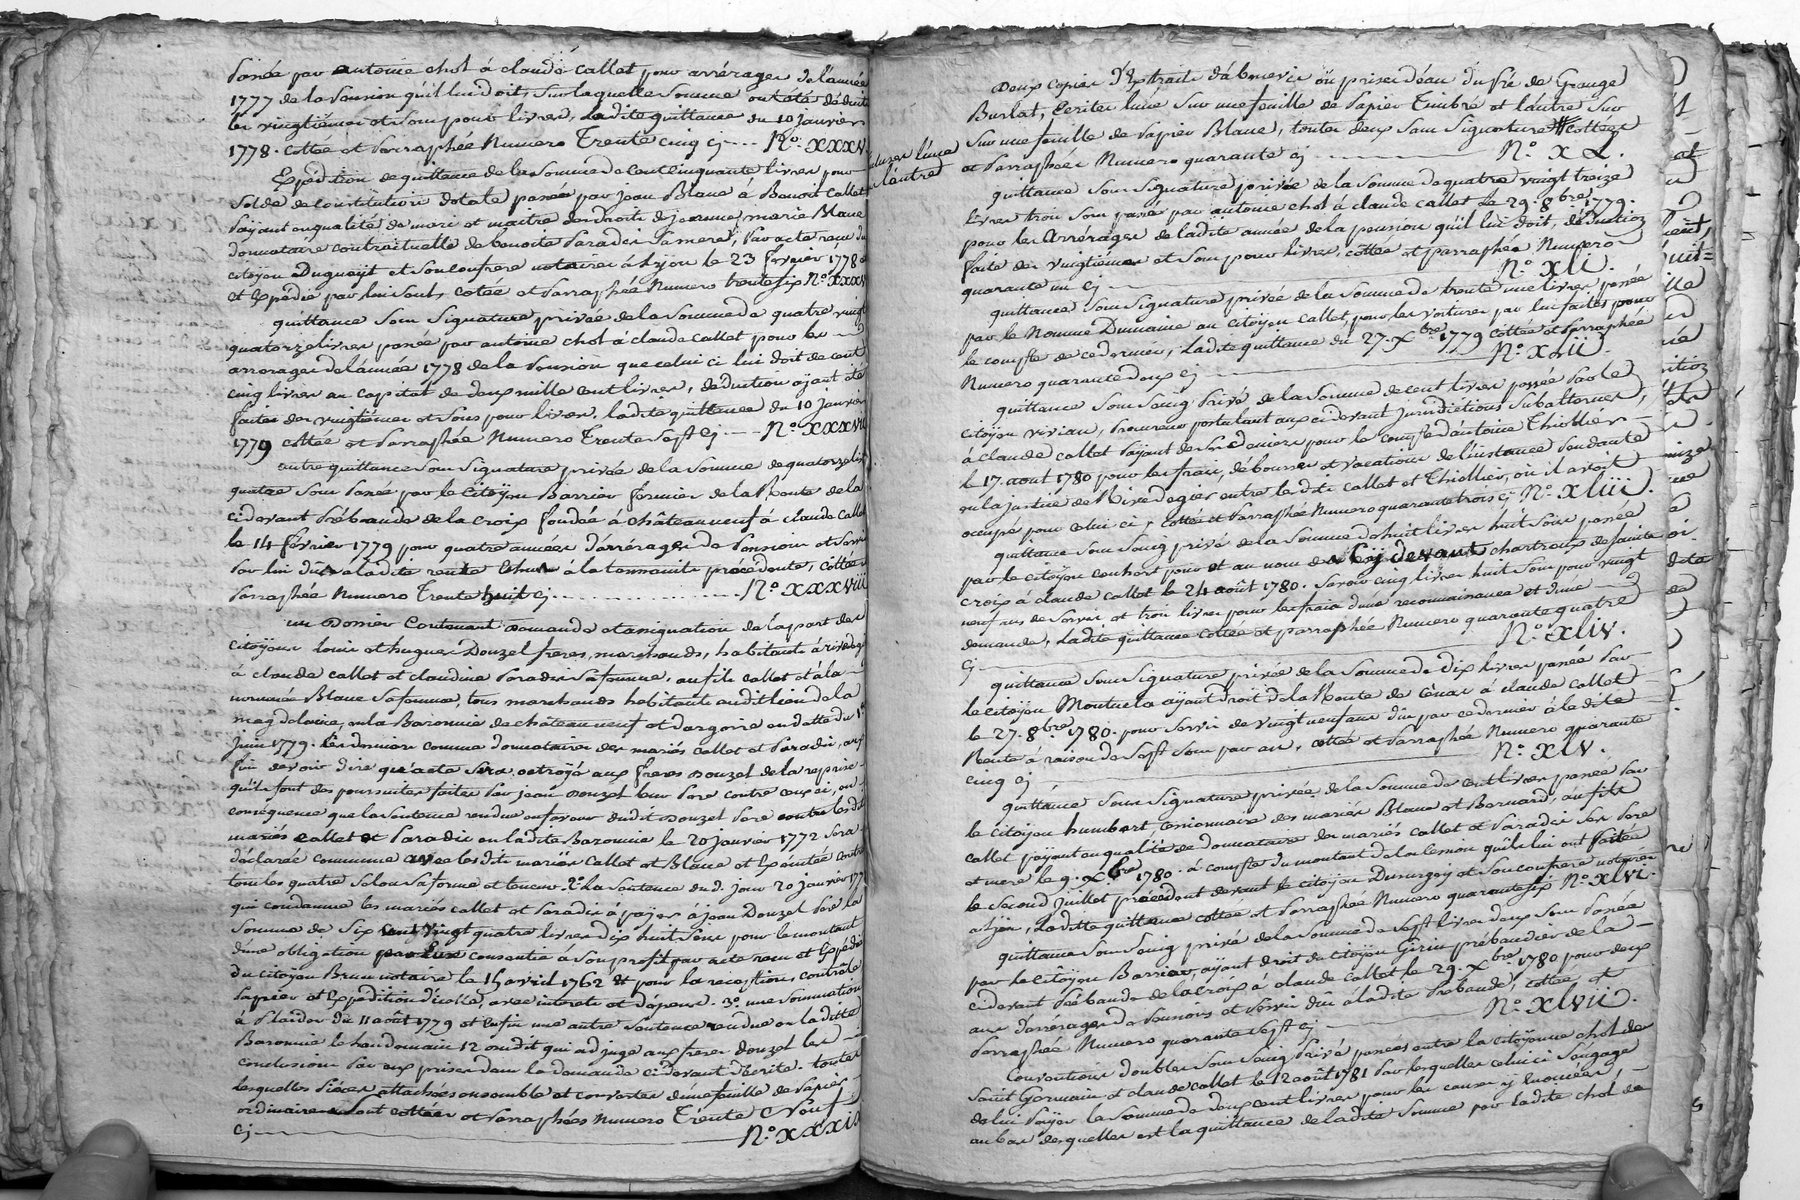 passée par antoine chol á claude Callet pour arrérages de l'année
1777 de la pension qu'il lui doit, sur laquelle somme ont été déduits
les vingtiémes et sous pour livres, Ladite quittance du 10 Janvier
1778. cottée et parraphée Numero Trente cinq cj --- N.o XXXV
Expédition de quittance de la somme de cent cinquante livres pour
solde de constitution dotale passée par Jean Blanc á Benoit Callet
payant en qualité de mari et maitre des droits de jeanne marie Blanc
donnataire contractuelle de benoite Paradis sa mere, par acte reçu du
citoyen Dugueyt et son confrere notaires á Lyon le 23 fevrier 1778
et Expédié par lui seul, cotée et Parraphée Numero trente six N.o XXXVI
quittance sous signature privée de la somme de quatre vingt
quatorze livres passée par antoine chol á claude Callet pour les
arrerages de l'année 1778 de la Pension que celui ci lui doit de cent
cinq livres au capital de deux mille cent livres, déduction ayant été
faites des vingtiémes et sous pour livres, ladite quittance du 10 janvier
1779 cottée et Parraphée Numero Trente Sept cj --- N.o XXXVII
autre quittance sous signature privée de la somme de quatorze livres
quatre sous passée par le Citoyen Barrier fermier de la Rente de la
cidevant Prébande de la croix fondée á châteauneuf á claude Callet
le 14 février 1779 pour quatre années d'arrérages de Pension et servis
par lui dûs a ladite rente Echus á la tennancite précédente, cottée et
Parraphée Numero Trente huit cj ............ N.o XXXVIII
un Dossier Contenant demande et assignation de la part des
citoyens louis et hugues Douzel freres, marchands, habitants á rivedegier
á claude callet et claudine Paradis sa femme, au fils callet et á la
nommée Blanc sa femme, tous marchands habitants audit lieu de la
magdelaine, en la Baronnie de châteauneuf et dargoire en datte du 1.er
Juin 1779. Les derniers comme donnataires des mariés callet et Paradis, aux
fins de voir dire qu'acte sera octroyé aux freres Douzel de la reprise
qu'ils font des poursuites faites par jean Douzel leur Pere contre ceux ci, en
conséquence que la Sentence rendue en faveur dudit Douzel Pere contre lesdits
mariés callet et Paradis en ladite Baronnie le 20 janvier 1772 sera
déclarée commune avec lesdits mariés Callet et Blanc et Exécutée contre
tous les quatre selon sa forme et teneur. 2.o La Sentence du d. jour 20 janvier 1772
qui condamne les mariés callet et Paradis á payer á jean Douzel Pere la
Somme de Six cent vingt quatre livres dix huit sous pour le montant
d'une obligation par Eux consentie á son profit par acte reçu et Expédié
du citoyen Brun notaire le 15 avril 1762 et pour la reception, controle
Papier et Expédition d'icelle, avec interets et dépens. 3.o une sommation
á Plaider du 11 août 1779 et Enfin une autre Sentence rendue en la ditte
Baronnie le lendemain 12 oudit qui adjuge aux freres Douzel les
conclusions par eux prises dans la demande cidevant décrite. toutes
lesquelles Piéces attachées ensemble et couvertes d'une feuille de Papier
ordinaire sont cottées et Parraphées Numero Trente Neuf
cj --- N.o XXXIX
Deux copies d'Extraits d'abenevis oü prises d'eau du Pré de Grange
Burlat, Ecrites l'une sur une feuille de Papier Timbré et l'autre sur
sur une feuille de Papier Blanc, toutes deux sans signature cottées
l'une
l'autre
et Parraphées Numero quarante cj --- N.o XL.
quittance sous signature privée de la somme de quatre vingt treize
livres trois sous passée par antoine chol á claude callet Le 29. 8.bre 1779.
pour les Arrérages de ladite année de la pension qu'il lui doit, déduction
faite des vingtiémes et sous pour livres, cottée et parraphée Numero
quarante un cj --- N.o XLI.
quittance sous signature privée de la somme de trente une livres passée
par le Nommé Dumaine au citoyen callet pour les voitures par lui faites pour
le compte de ce dernier, Ladite quittance du 27. X.bre 1779 cottée et Parraphée
Numero quarante deux cj --- N.o XLII.
quittance sous seing Privé de la somme de cent livres passée Par le
citoyen vivian, Procureur postulant aux cidevant Jurisdictions subalternes,
á claude callet payant de ses deniers pour le compte d'antoine Thiollier
le 17. aout 1780 pour les frais, débourses et vacations de l'instance pendante
en la justice de Rivedegier entre lesdits callet et Thiollier, oü il avoit
occupé pour celui ci, cottée et Parraphée Numero quarante trois cj N.o XLIII.
quittance sous seing privé de la somme de huit livres huit sous passée
par le citoyen couhert pour et au nom des Cydevants chartreux de sainte
croix á claude callet le 24 août 1780. savoir cinq livres huit sous pour vingt
neuf ans de servis et trois livres pour les frais d'une reconnaissance et d'une
demande, Ladite quittance cottée et parraphée Numero quarante quatre
cj --- N.o XLIV.
quittance sous signature privée de la somme de dix livres passée Par
le citoyen Montuela ayant droit de la Rente de Senas á claude Callet
le 27. 8.bre 1780. pour servis de vingt neuf ans dûs par ce dernier á ladite
Rente á raison de Sept sous par an, cottée et Parraphée Numero quarante
cinq cj --- N.o XLV.
quittance sous signature privée de la somme de cent livres passée Par
le citoyen humbert, cessionnaire des mariés Blanc et Bernard, au fils
callet payant en qualité de donnataire des mariés callet et Paradis ses Pere
et mere le 9. X.bre 1780. á compte du montant de la cession qu'ils lui ont faitte
le second juillet précédent devant le citoyen Dussurgey et son confrere notaires
a lyon, Ladite quittance cottée et Parraphée Numero quarante six N.o XLVI.
quittance sous seing privé de la somme de sept livres deux sous Passée
par le citoyen Barrier, ayant droit du citoyen Girin prébandier de la
cidevant Prébande de la croix á claude callet le 29. X.bre 1780 pour deux
ans d'arrérages de Pensions et servis dûs á ladite Prébande, cottée et
Parraphée Numero quarante Sept cj --- N.o XLVII.
Conventions doubles sous seing Privé passées entre la citoyenne chol de
saint Germain et claude callet le 12 août 1781 Par lesquelles celui ci s'engage
de lui Payer la somme de deux cent livres pour les causes y Enoncées,
au bas desquelles est la quittance de ladite somme par ladite chol de